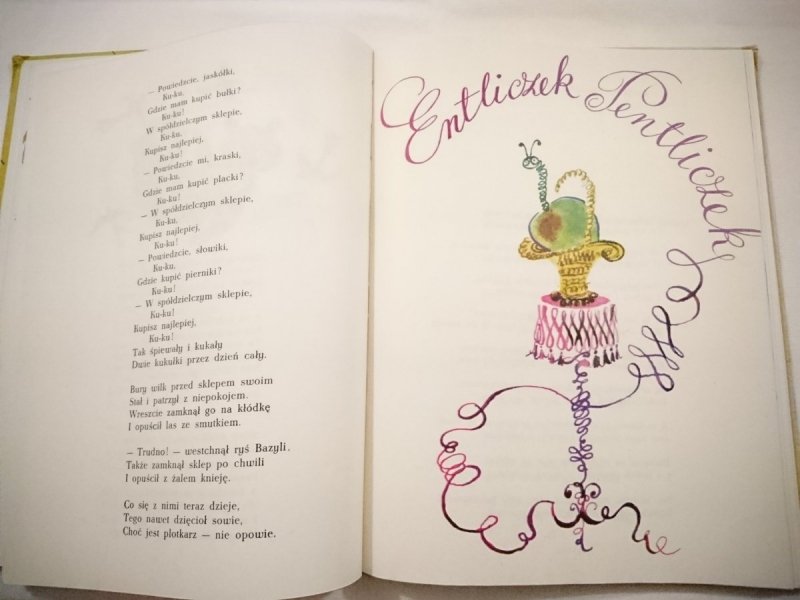 — Powiedzcie, jaskółki,
Ku-ku,
Gdzie mam kupić bułki?
Ku-ku!
W spółdzielczym sklepie,
Ku-ku,
Kupisz najlepiej,
Ku-ku!
— Powiedzcie mi, kraski,
Ku-ku,
Gdzie mam kupić placki?
Ku-ku!
— W spółdzielczym sklepie,
Ku-ku,
Kupisz najlepiej,
Ku-ku!
— Powiedzcie, słowiki,
Ku-ku,
Gdzie kupić pierniki?
Ku-ku!
— W spółdzielczym sklepie,
Ku-ku!
Kupisz najlepiej,
Ku-ku!
Tak śpiewały i kukały
Dwie kukułki przez dzień cały.
Bury wilk przed sklepem swoim
Stał i patrzył z niepokojem.
Wreszcie zamknął go na kłódkę
I opuścił las ze smutkiem.
— Trudno! — westchnął ryś Bazyli.
Także zamknął sklep po chwili
I opuścił z żalem knieję.
Co się z nimi teraz dzieje,
Tego nawet dzięcioł sowie,
Choć jest plotkarz — nie opowie.
Entliczek Pentliczek